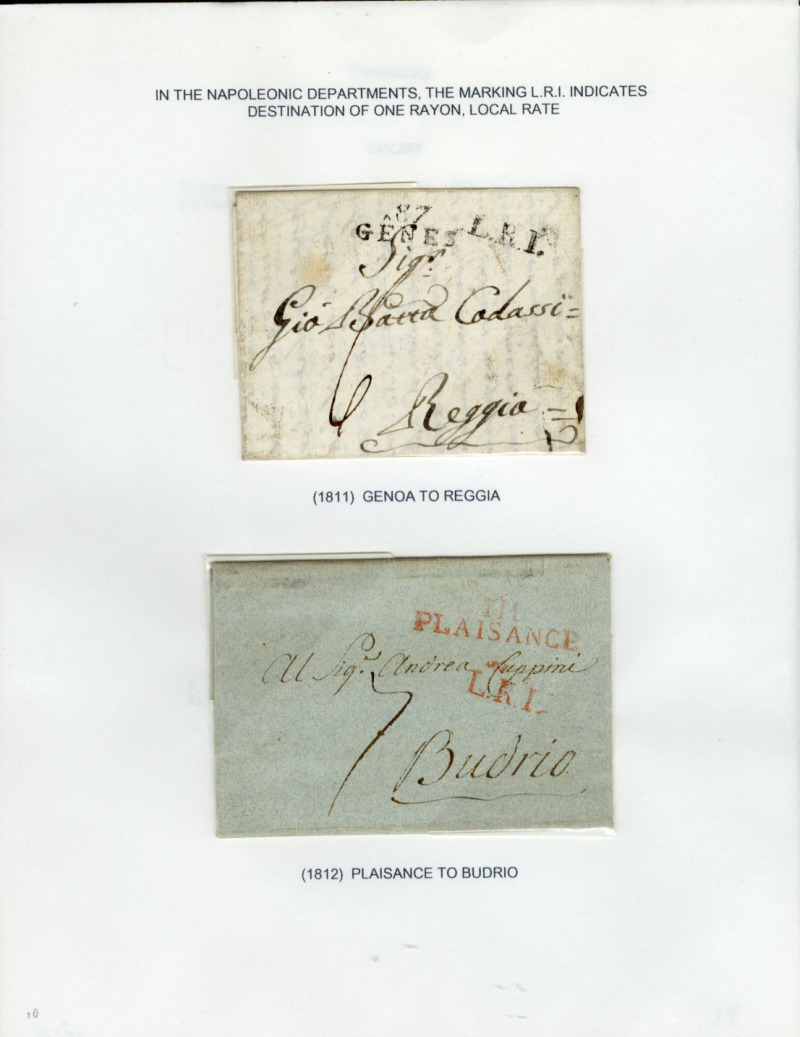 IN THE NAPOLEONIC DEPARTMENTS, THE MARKING L.R.I. INDICATES
DESTINATION OF ONE RAYON, LOCAL RATE
87
GÊNES
L.R.I.
Sigr.
Gio Batta Codassi=
6
Reggio=
(1811) GENOA TO REGGIA
111
PLAISANCE
Al Sigr. Andrea Cuppini
L.R.I.
7
Budrio
(1812) PLAISANCE TO BUDRIO
10